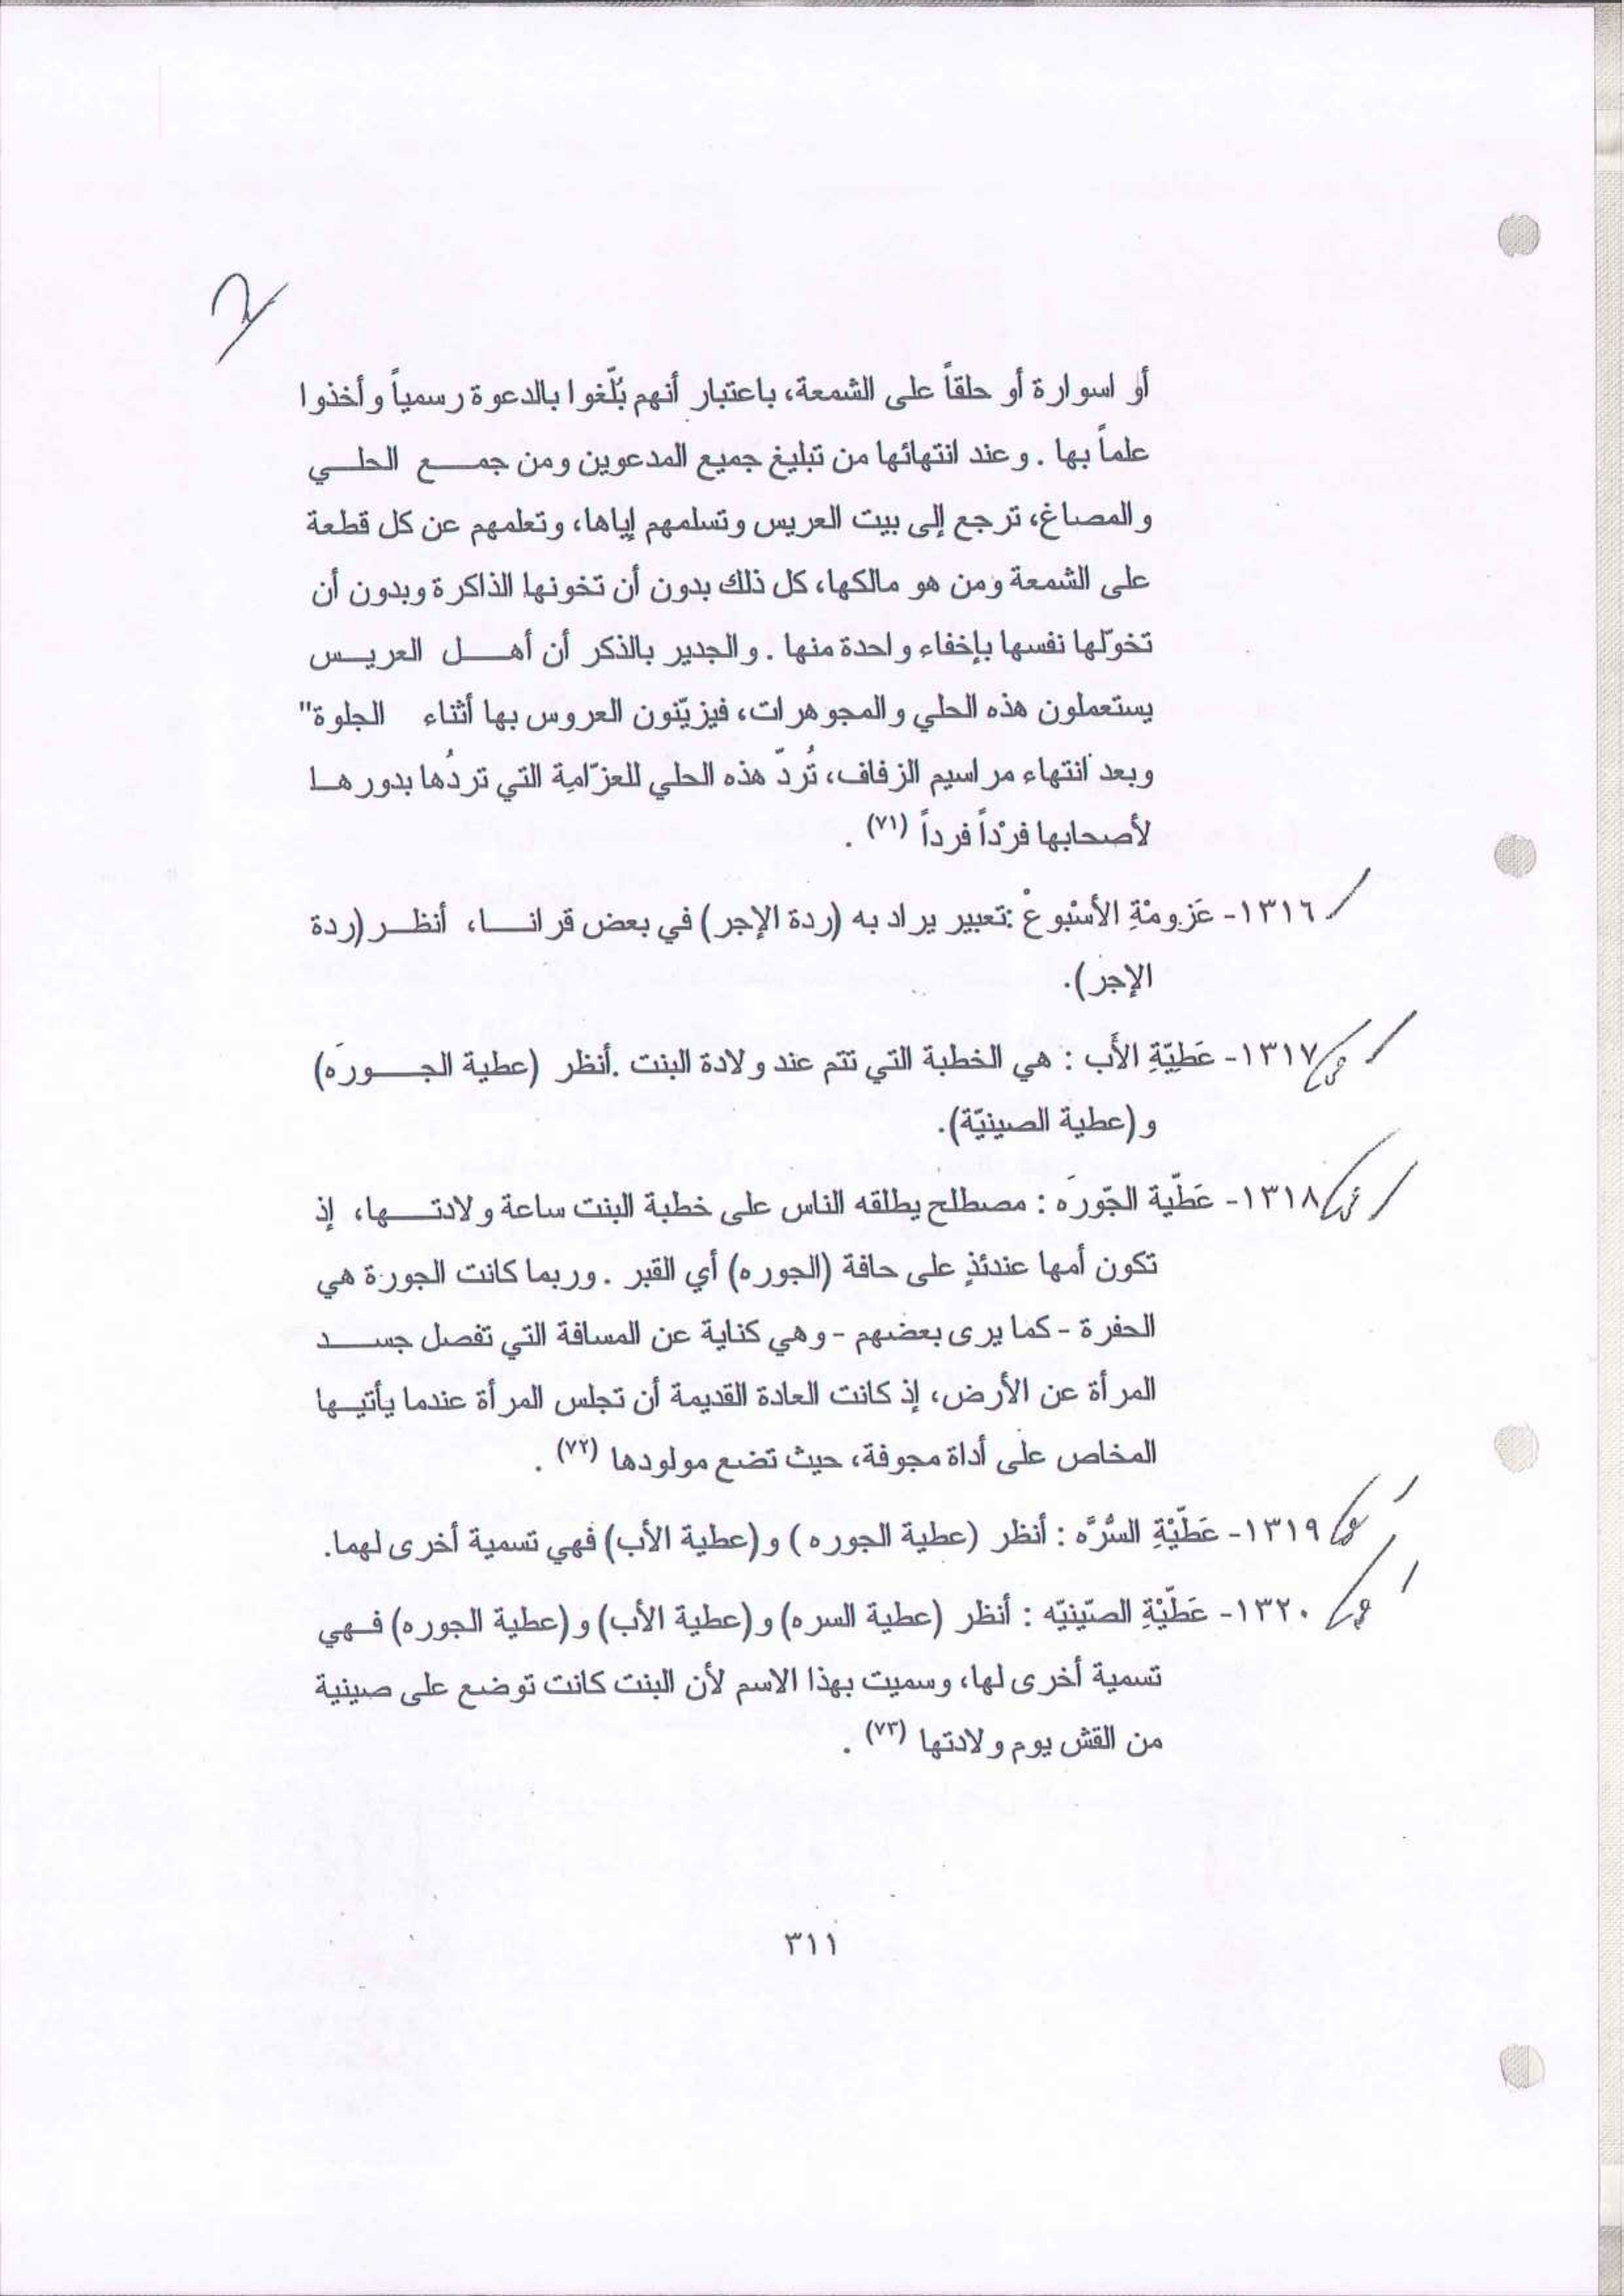 أو اسوارة أو حلقاً على الشمعة، باعتبار أنهم بُلّغوا بالدعوة رسمياً وأخذوا
علماً بها . وعند انتهائها من تبليغ جميع المدعوين ومن جمـــع الحلـــي
والمصاغ، ترجع إلى بيت العريس وتسلمهم إياها، وتعلمهم عن كل قطعة
على الشمعة ومن هو مالكها، كل ذلك بدون أن تخونها الذاكرة وبدون أن
تخوّلها نفسها بإخفاء واحدة منها . والجدير بالذكر أن أهـــل العريــس
يستعملون هذه الحلي والمجوهرات، فيزيّنون العروس بها أثناء الجلوة"
وبعد انتهاء مراسيم الزفاف، تُردّ هذه الحلي للعزّامِة التي تردُها بدورهـا
لأصحابها فرْداً فرداً (٧١) .
١٣١٦- عَزومْةِ الأسْبُوعْ :تعبير يراد به (ردة الإجر) في بعض قرانــا، أنظــر (ردة
الإجر).
١٣١٧- عَطِيّةِ الأَب : هي الخطبة التي تتم عند ولادة البنت .أنظر (عطية الجــورَه)
و(عطية الصينيّة).
١٣١٨- عَطّية الجّورَه : مصطلح يطلقه الناس على خطبة البنت ساعة ولادتــها، إذ
تكون أمها عندئذٍ على حافة (الجوره) أي القبر . وربما كانت الجورة هي
الحفرة - كما يرى بعضهم - وهي كناية عن المسافة التي تفصل جســد
المرأة عن الأرض، إذ كانت العادة القديمة أن تجلس المرأة عندما يأتيـها
المخاص على أداة مجوفة، حيث تضع مولودها (٧٢) .
١٣١٩- عَطّيْةِ السُّرَّه : أنظر (عطية الجوره ) و(عطية الأب) فهي تسمية أخرى لهما.
١٣٢٠- عَطّيْةِ الصّينيّه : أنظر (عطية السره) و(عطية الأب) و(عطية الجوره) فـهي
تسمية أخرى لها، وسميت بهذا الاسم لأن البنت كانت توضع على صينية
من القش يوم ولادتها (٧٣) .
٣١١